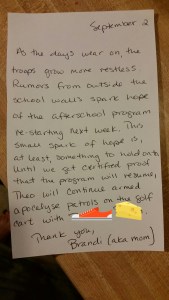 September 2
As the days wear on, the
troops grow more restless
Rumors from outside the
school walls spark hope
of the afterschool program
re-starting next week. This
small spark of hope is,
at least, something to hold onto.
Until we get certified proof
that the program will resume,
Theo will continue armed
apocalypse patrols on the golf
cart with
Thank you,
Brandi (aka mom)